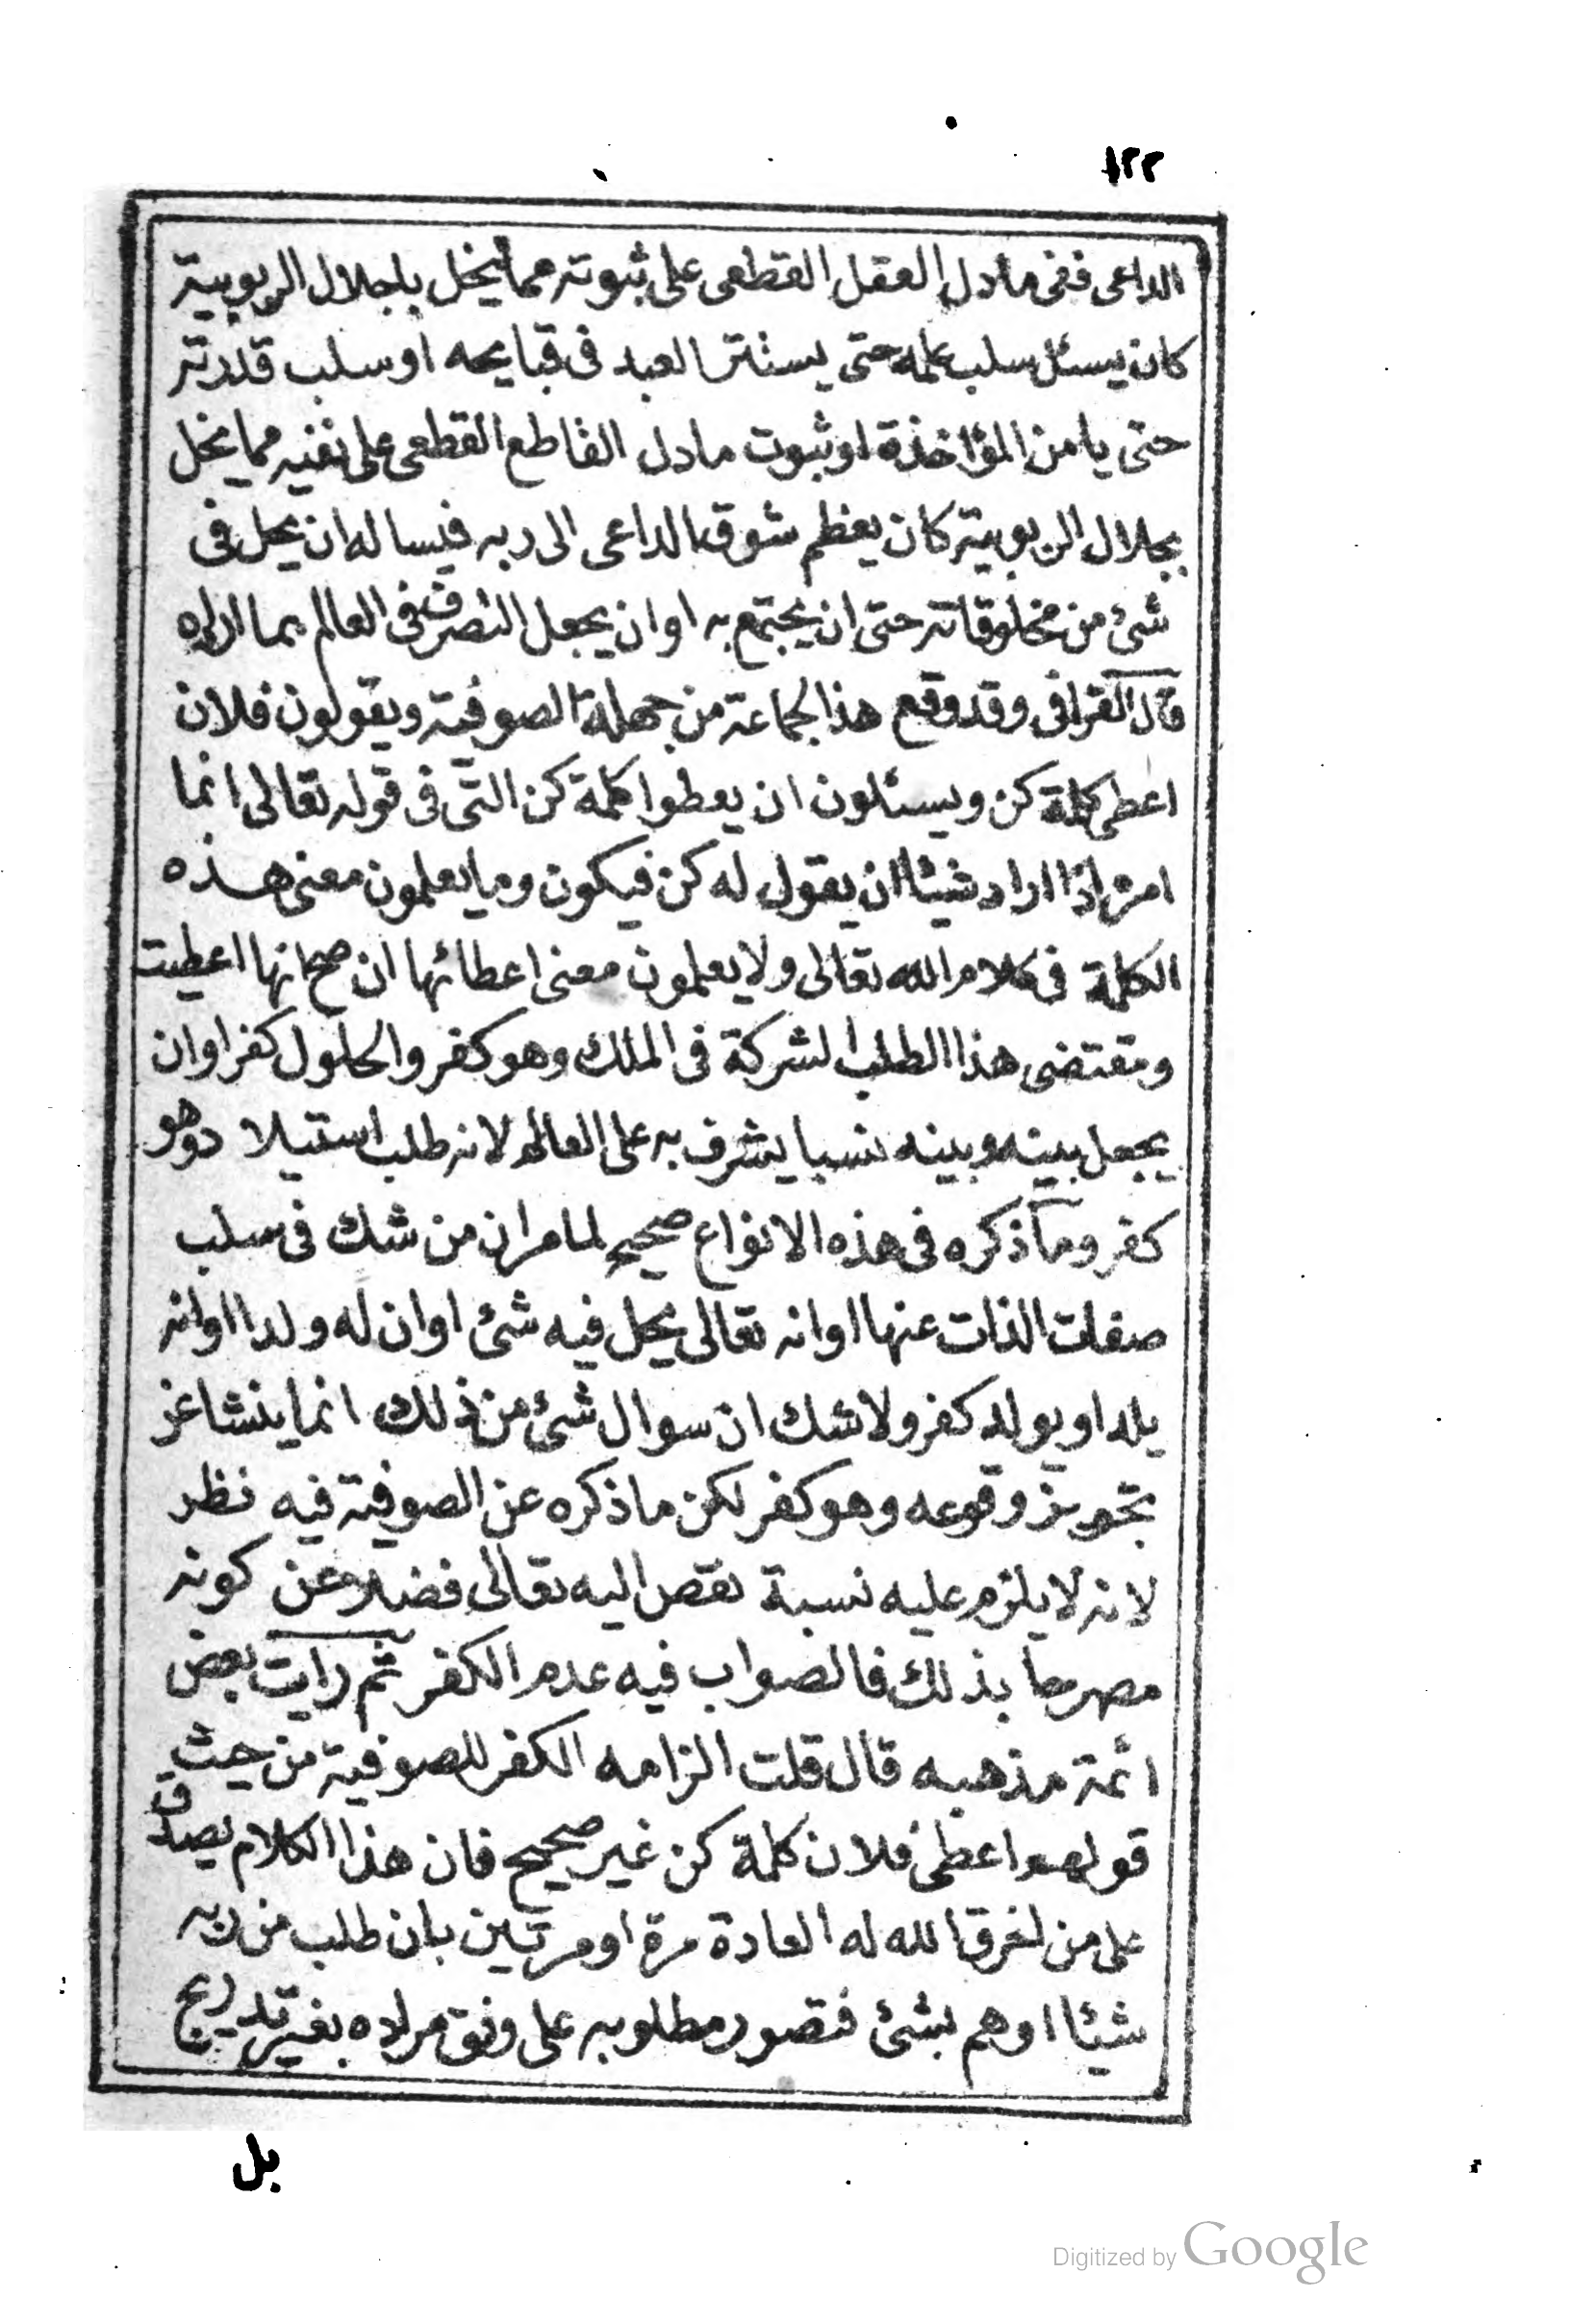 ١٢٢
الداعى ففى مادل العقل القطعى على ثبوته مما يخل باجلال الربوبية
كان يسئل سلب علمه حتى يستتر العبد فى قبايحه او سلب قدرته
حتى يامن المؤاخذة او ثبوت مادل القاطع القطعى على نفيه مما يخل
بجلال الربوبية كان يعظم شوق الداعى الى ربه فيساله ان يحل فى
شئ من مخلوقاته حتى ان يجتمع به او ان يجعل التصرف فى العالم بما اراده
قال القرافى وقد وقع هذا لجماعة من جهلة الصوفية ويقولون فلان
اعطى كلمة كن ويسئلون ان يعطوا كلمة كن التى فى قوله تعالى انما
امره اذا اراد شيئا ان يقول له كن فيكون وما يعلمون معنى هذه
الكلمة فى كلام الله تعالى ولا يعلمون معنى اعطائها ان صح انها اعطيت
ومقتضى هذا الطلب الشركة فى الملك وهو كفر والحلول كفر او ان
يجعل بينه وبينه نسبا يشرف به على العالم لانه طلب استيلا د وهو
كفر وما ذكره فى هذه الانواع صحيح لما مر ان من شك فى سلب
صفات الذات عنها او انه تعالى يحل فيه شئ او ان له ولدا او انه
يلد او يولد كفر ولا شك ان سوال شئ من ذلك انما ينشا عن
تجويز وقوعه وهو كفر لكن ما ذكره عن الصوفية فيه نظر
لانه لا يلزم عليه نسبة نقص اليه تعالى فضلا عن كونه
مصرحا بذلك فالصواب فيه عدم الكفر ثم رايت بعض
ائمة مذهبه قال قلت الزامه الكفر للصوفية من حيث
قولهم اعطى فلان كلمة كن غير صحيح فان هذا الكلام يصدق
على من لخرق الله له العادة مرة او مرتين بان طلب من ربه
شيئا اوهم بشئ فتصور مطلوبه على وفق مراده بغير تدريج
بل
Digitized by Google